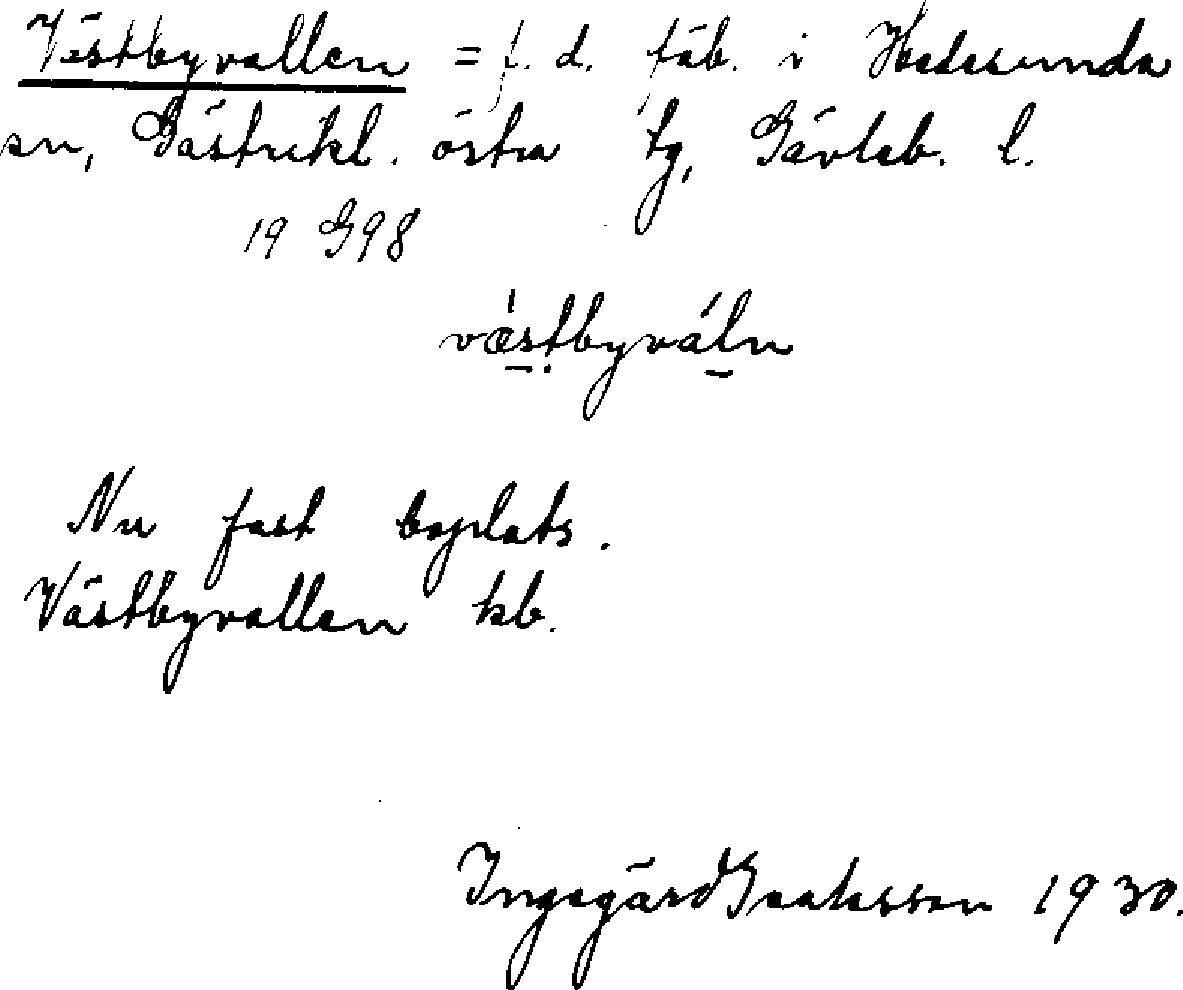 Västbyvallen = f. d. fäb. i Hedesunda
sn, Gästrikl. östra tg, Gävleb. l.
19 G98
væ̀stbyváln
Nu fast boplats.
Västbyvallen kb.
Ingegärd Isaksson 1930.